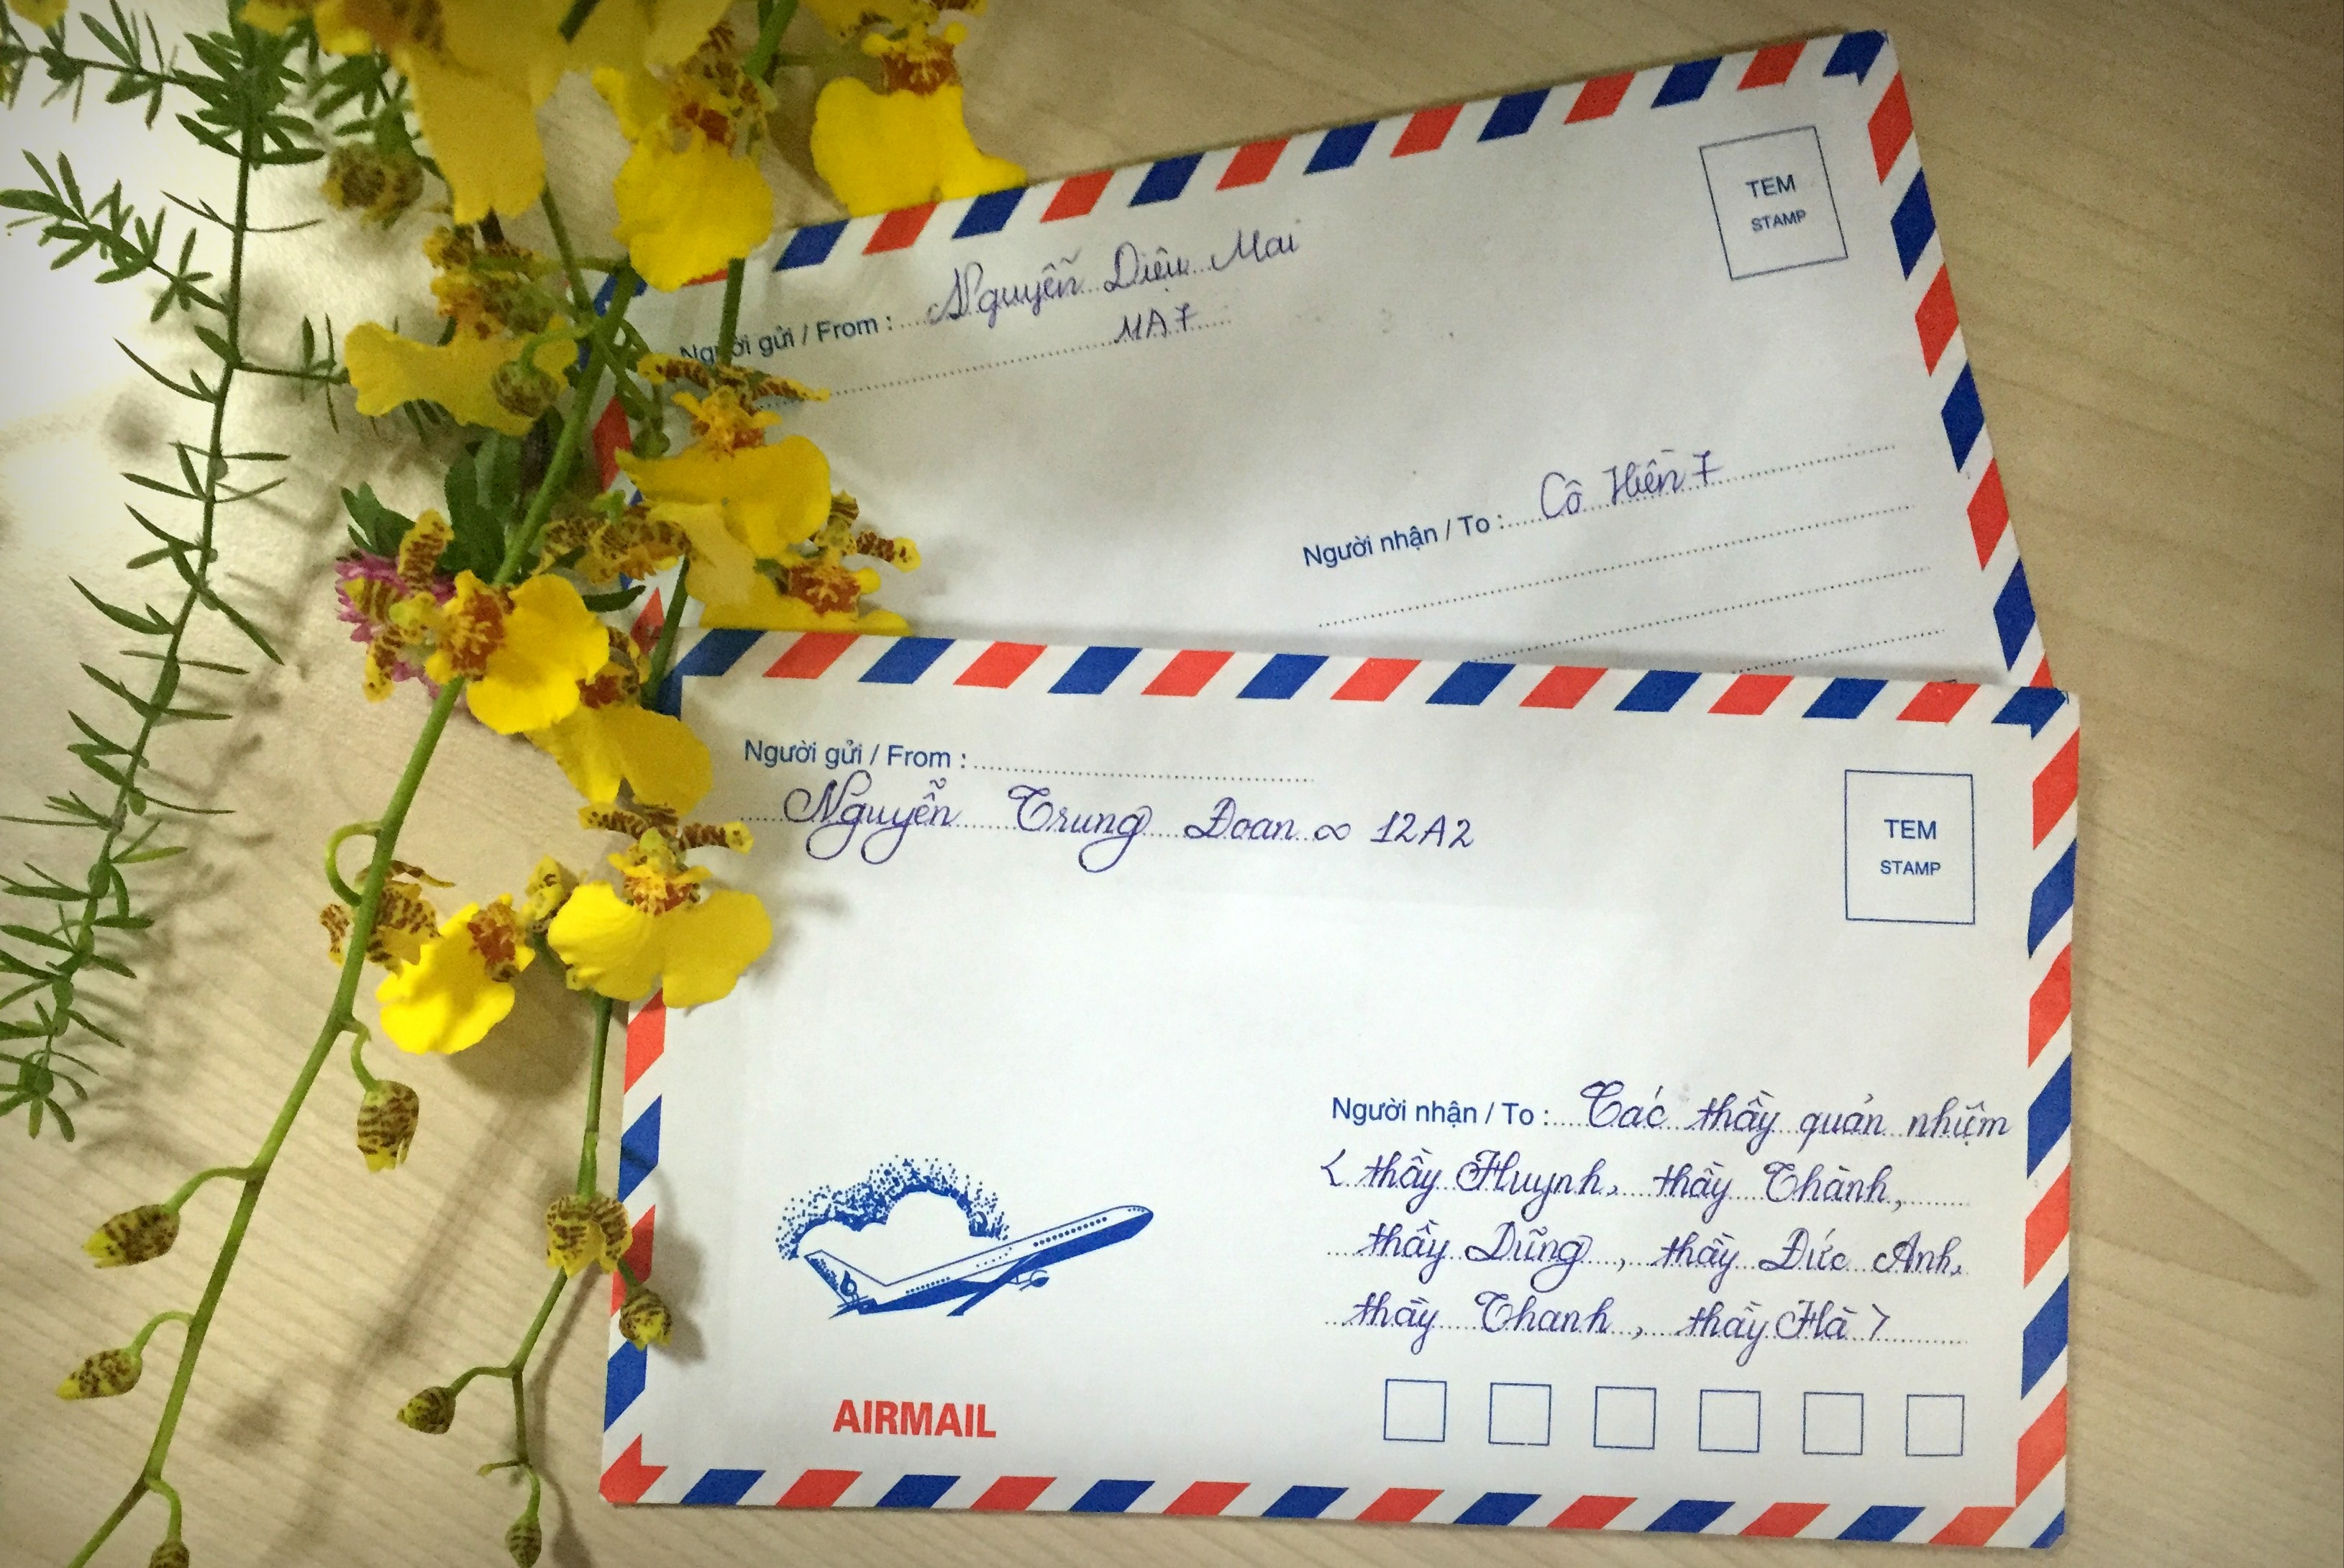 Người gửi / From : Nguyễn Diệu Mai
11A7
TEM
STAMP
Người nhận / To : Cô Hiền 7
Người gửi / From :
Nguyễn Trung Đoan ∞ 12A2
TEM
STAMP
Người nhận / To : Các thầy quản nhiệm
< thầy Huynh, thầy Thành,
thầy Dũng, thầy Đức Anh,
thầy Thanh, thầy Hà >
AIRMAIL